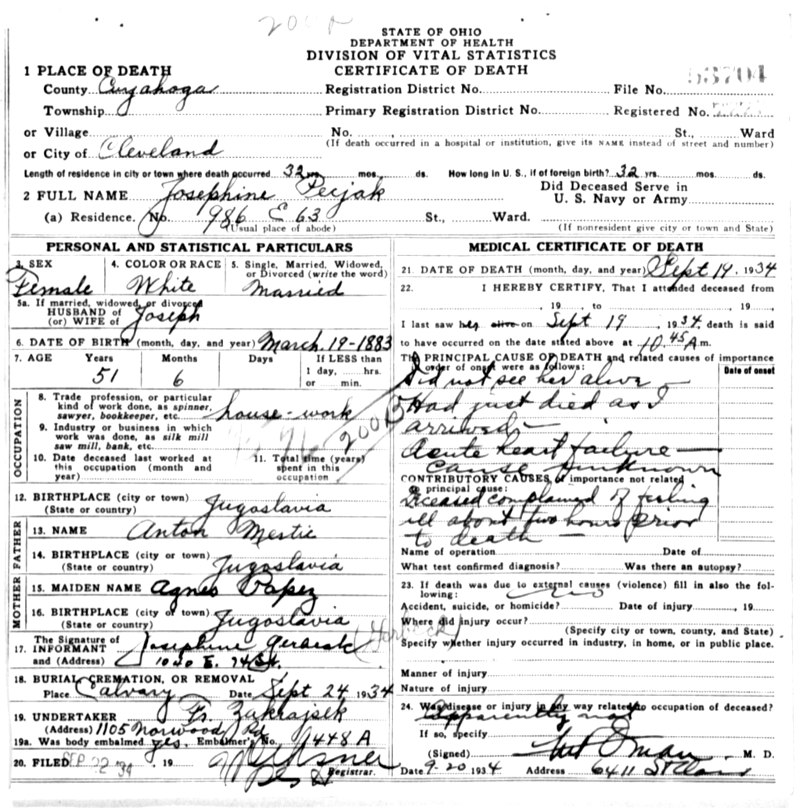 STATE OF OHIO
DEPARTMENT OF HEALTH
DIVISION OF VITAL STATISTICS
CERTIFICATE OF DEATH
1 PLACE OF DEATH
County Cuyahoga Registration District No. File No. 53704
Township Primary Registration District No. Registered No.
or Village No. , St., Ward
(If death occurred in a hospital or institution, give its NAME instead of street and number)
or City of Cleveland
Length of residence in city or town where death occurred 32 yrs. mos. ds. How long in U. S., if of foreign birth? 32 yrs. mos. ds.
2 FULL NAME Josephine Pecjak Did Deceased Serve in U. S. Navy or Army
(a) Residence. No. 986 E 63 St., Ward.
(Usual place of abode) (If nonresident give city or town and State)
PERSONAL AND STATISTICAL PARTICULARS
3. SEX Female
4. COLOR OR RACE White
5. Single, Married, Widowed, or Divorced (write the word) Married
5a. If married, widowed, or divorced
HUSBAND of
(or) WIFE of Joseph
6. DATE OF BIRTH (month, day, and year) March 19-1883
7. AGE Years 51 Months 6 Days If LESS than 1 day, hrs. or min.
OCCUPATION
8. Trade, profession, or particular kind of work done, as spinner, sawyer, bookkeeper, etc. house-work
9. Industry or business in which work was done, as silk mill saw mill, bank, etc.
10. Date deceased last worked at this occupation (month and year)
11. Total time (years) spent in this occupation
200B
12. BIRTHPLACE (city or town) (State or country) Jugoslavia
FATHER
13. NAME Anton Mestic
14. BIRTHPLACE (city or town) (State or country) Jugoslavia
MOTHER
15. MAIDEN NAME Agnes Papez
16. BIRTHPLACE (city or town) (State or country) Jugoslavia
17. The Signature of INFORMANT Josephine
and (Address) 1020 E. 74 St.
18. BURIAL, CREMATION, OR REMOVAL
Place Calvary Date Sept 24 1934
19. UNDERTAKER Fr. Zakrajsek
(Address) 1105 Norwood Rd
19a. Was body embalmed yes. Embalmer's No. 1448 A
20. FILED SEP 22 '34, 19 Registrar.
MEDICAL CERTIFICATE OF DEATH
21. DATE OF DEATH (month, day, and year) Sept 19, 1934
22. I HEREBY CERTIFY, That I attended deceased from
, 19 , to , 19 ,
I last saw her alive on Sept 19, 1934, death is said
to have occurred on the date stated above at 10.45 A m.
The PRINCIPAL CAUSE OF DEATH and related causes of importance
order of onset were as follows: Date of onset
Did not see her alive —
Had just died as I
arrived —
Acute heart failure —
Cause Unknown
CONTRIBUTORY CAUSES of importance not related
principal cause:
Deceased complained of feeling
ill about two hours prior
to death —
Name of operation Date of
What test confirmed diagnosis? Was there an autopsy?
23. If death was due to external causes (violence) fill in also the following: no
Accident, suicide, or homicide? Date of injury , 19
Where did injury occur?
(Specify city or town, county, and State)
Specify whether injury occurred in industry, in home, or in public place.
Manner of injury
Nature of injury
24. Was disease or injury in any way related to occupation of deceased?
Apparently not
If so, specify
(Signed) Oman M. D.
Date 9-20 1934 Address 6411 St Clair